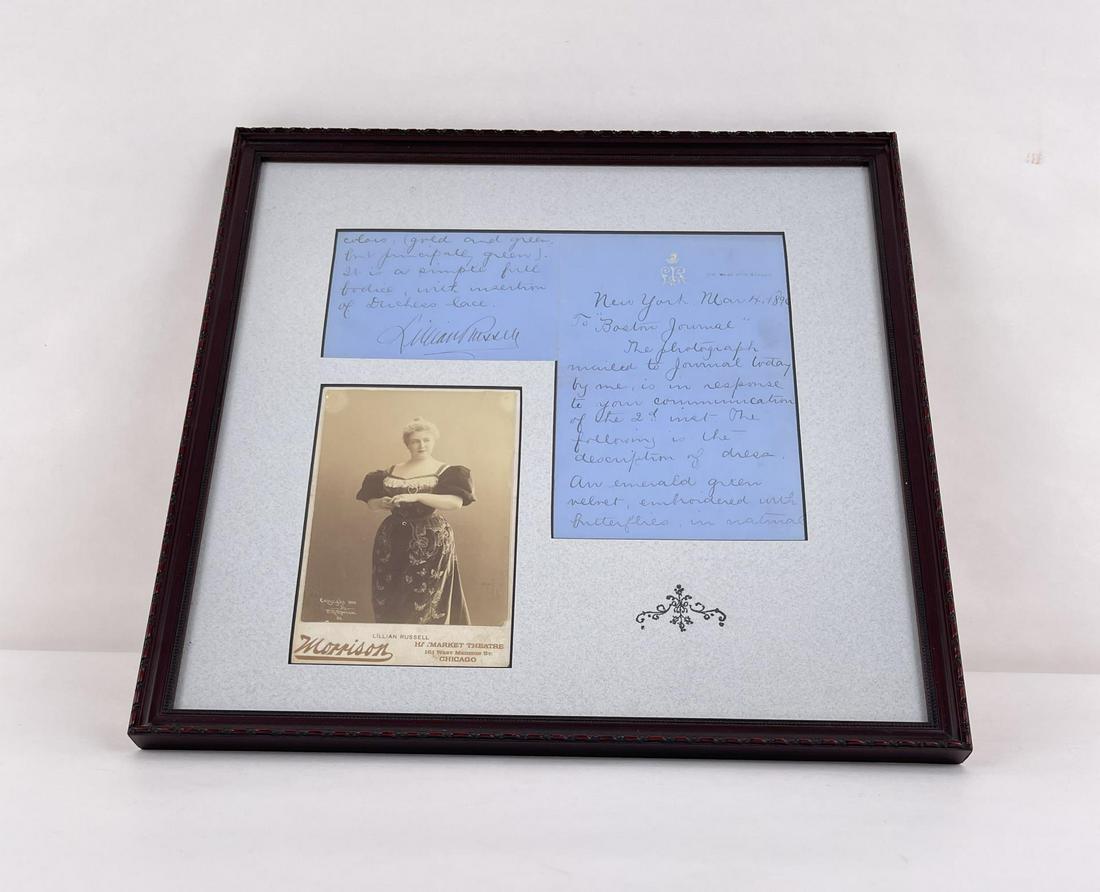 New York Mar 4. 189
To "Boston Journal"
The photograph
mailed to Journal today
by me, is in response
to your communication
of the 2d inst The
following is the
description of dress.
An emerald green
velvet, embroidered with
butterflies, in natural
colors, (gold and green,
but principally green).
It is a simple full
bodice, with insertion
of Duchess lace.
Lillian Russell
LILLIAN RUSSELL
Morrison
HAYMARKET THEATRE
161 WEST MADISON ST.
CHICAGO